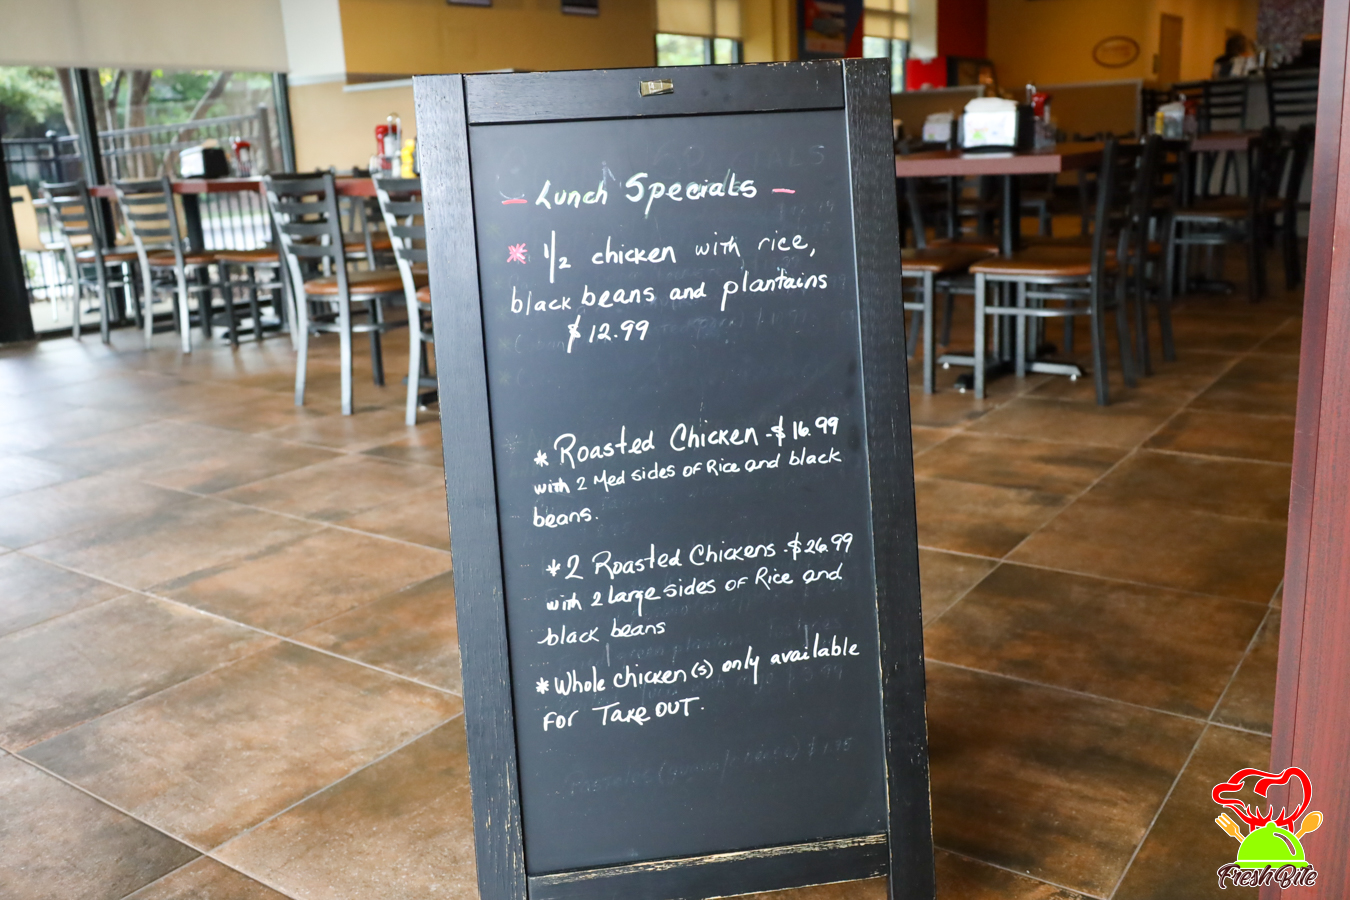 Lunch Specials
* 1/2 chicken with rice,
black beans and plantains
$12.99
* Roasted Chicken - $16.99
with 2 Med sides of Rice and black
beans.
* 2 Roasted Chickens - $26.99
with 2 large sides of Rice and
black beans
* Whole chicken(s) only available
For Take OUT.
FreshBite